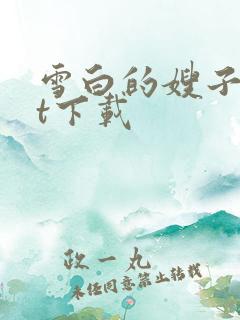 雪白的嫂子
t下载
政一丸
未经同意禁止转载